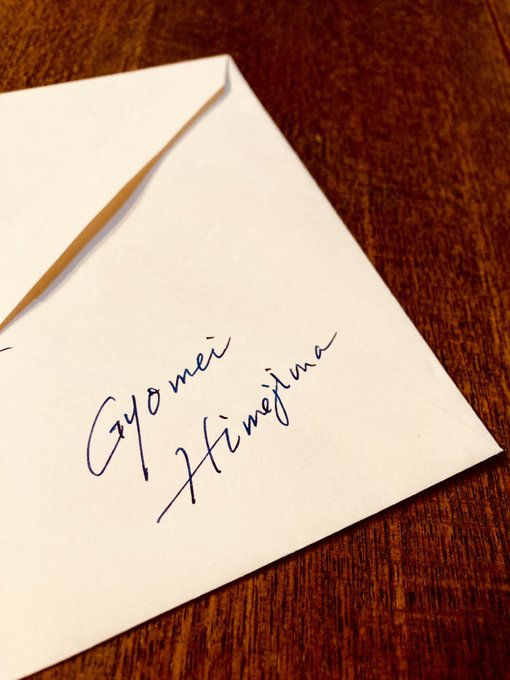 Gyomei
Himejima